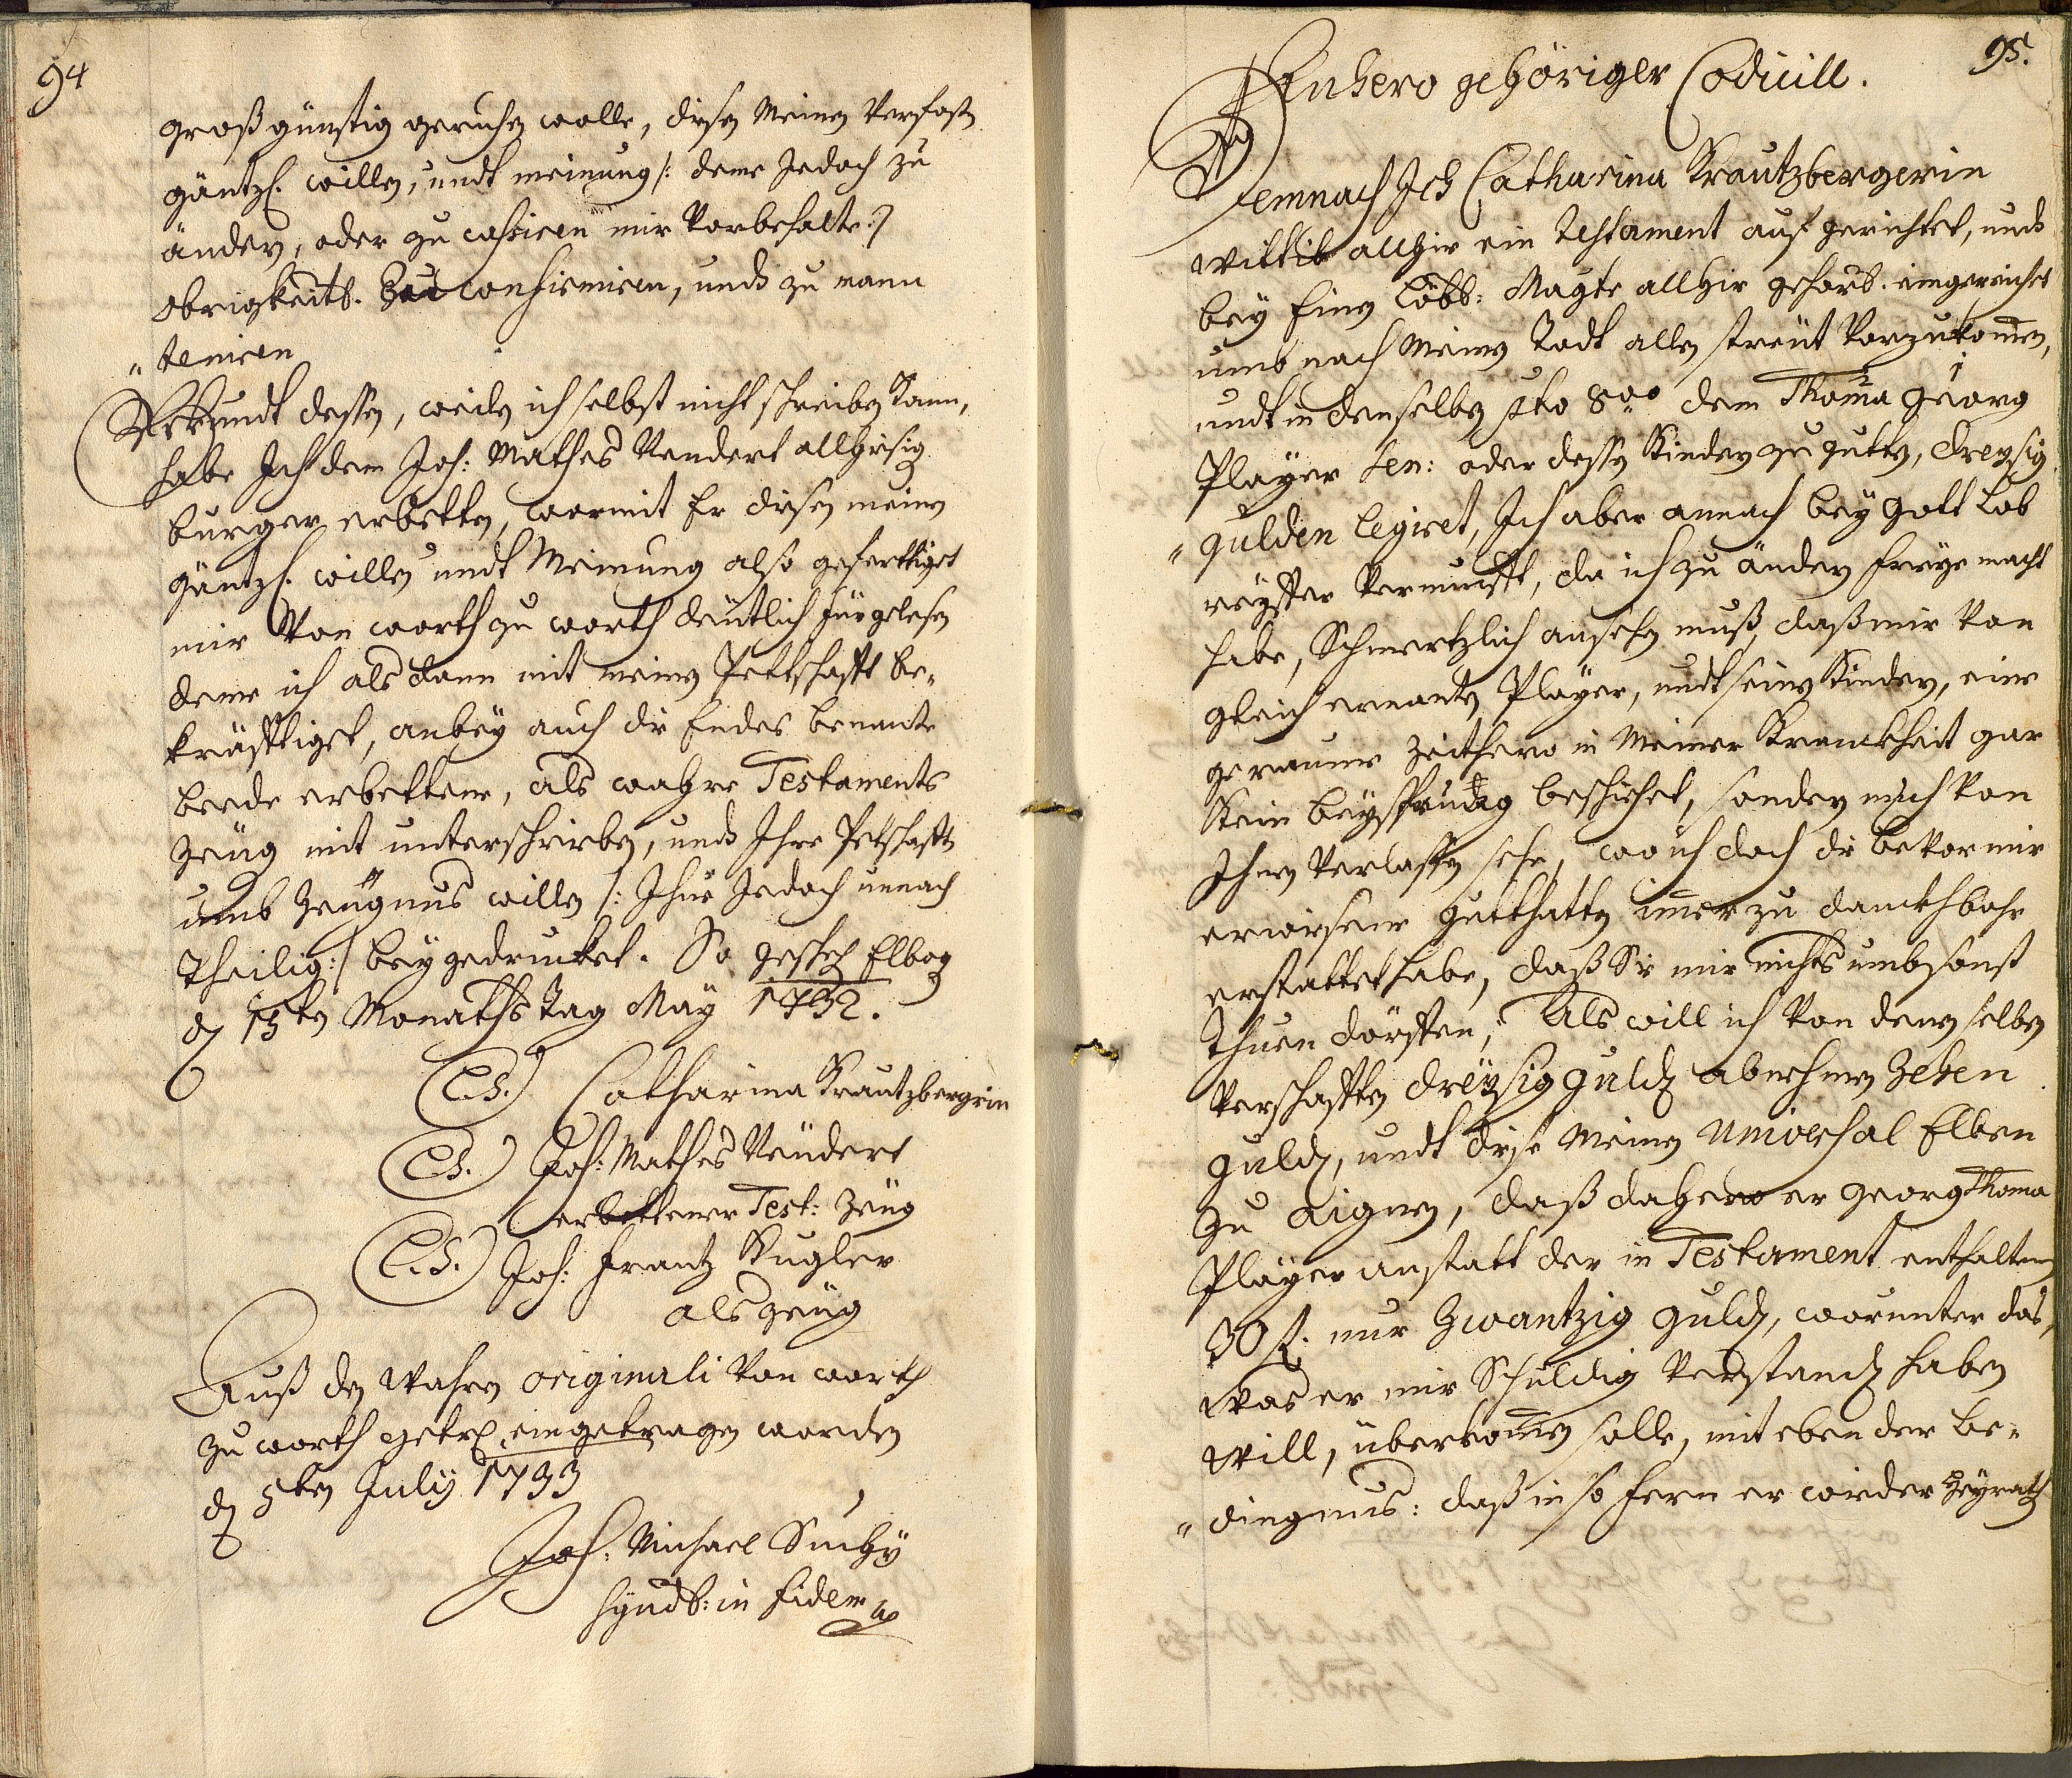 94
großgünstig geruhen wolle, diesen Meinen Verfasten
gäntzl. willen, undt meinung /: deme Jedoch zu
ändern, oder zu cassiren mir Vorbehalte :/
Obrigkeitl. Zu confirmiren, undt zu manu
„ teniren
Uhrkundt dessen, weilen ich selbst nicht schreiben kann,
habe Ich dem Joh: Mathes Neudert allhiesig
burger erbetten, wormit Er diesen meinen
gäntzl. willen undt Meinung also gefertiget
mir Von worth zu worth deutlich fürgelesen
deme ich alsdann mit meinen Pettschafft be„
kräfftiget, anbey auch die Endes benante
beede erbettene, als wahre Testaments
Zeüg mit unterschrieben, undt Ihre Petschafft
umb Zeügnus willen /: Ihne Jedoch unnach
theilig :/ beygedrucket. So gescheh Elbog
d 15ten Monaths Tag May 1732.
(L.S.) Catharina Krautzbergrin
(L.S.) Joh: Mathes Neudert
erbettener Test: Zeüg
(L.S.) Joh: Frantz Kugler
als Zeüg
Auß den Wahren originali Von worth
zu worth getrl. eingetragen worden
d 5ten July 1733
Joh: Michael Suchy
Synd: in fidem
95.
Anhero gehöriger Codicill.
Demnach Ich Catharina Krautzbergerin
Wittib allhier ein Testament aufgerichtet, undt
bey Einen Löbl: Magte allhier gehors. eingereichet
umb nach Meinen Todt allen streüt Vorzukomen,
undt in denselben pto 8vo dem Thoma 2 Georg 1
Player sen: oder dessen Kindern zu gutten, dreysig
„ gulden legiret, Ich aber annach bey Gott Lob
reiffer Vernunfft, da ich zu ändern freye macht
habe, Schmertzlich ansehen muß, daß mir Von
gleich ernanten Player, undt seinen Kindern, eine
geraume Zeithero in Meiner Kranckheit gar
Kein beysprung beschiehet, sondern mich Von
Ihnen Verlassen sehe, wo ich doch die bevor mir
erwiesene gutthatten imer zu danckhbahr
erstattet habe, daß Sie mir nichts umbsonst
Thuen dörffen; Als will ich Von denen selben
Verschafften dreysig guld abnehmen Zehen
guld, undt diese Meinen Universal Erben
zu aignen, daß dahero er Georg Thoma
Player anstatt der in Testament enthaltenen
30 f. nur Zwantzig guld, worunter das,
Was er mir Schuldig Verstand haben
Will, überkomen solle, mit eben der be„
„ dingnus: daß in so fern er wieder Heyrath